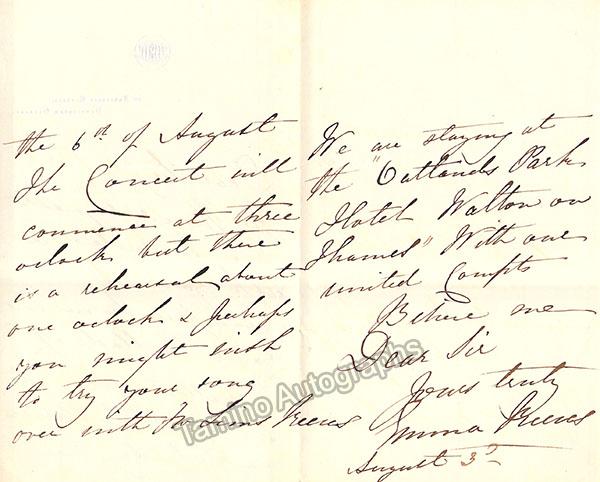 the 6th of August
The Concert will
commence at three
oclock but there
is a rehearsal about
one oclock & perhaps
you might wish
to try your song
over with Mr Sims Reeves
We are staying at
the "Oatlands Park
Hotel Walton on
Thames" With our
united Compts
Believe me
Dear Sir
Yours truly
Emma Reeves
August 3d
Tamino Autographs